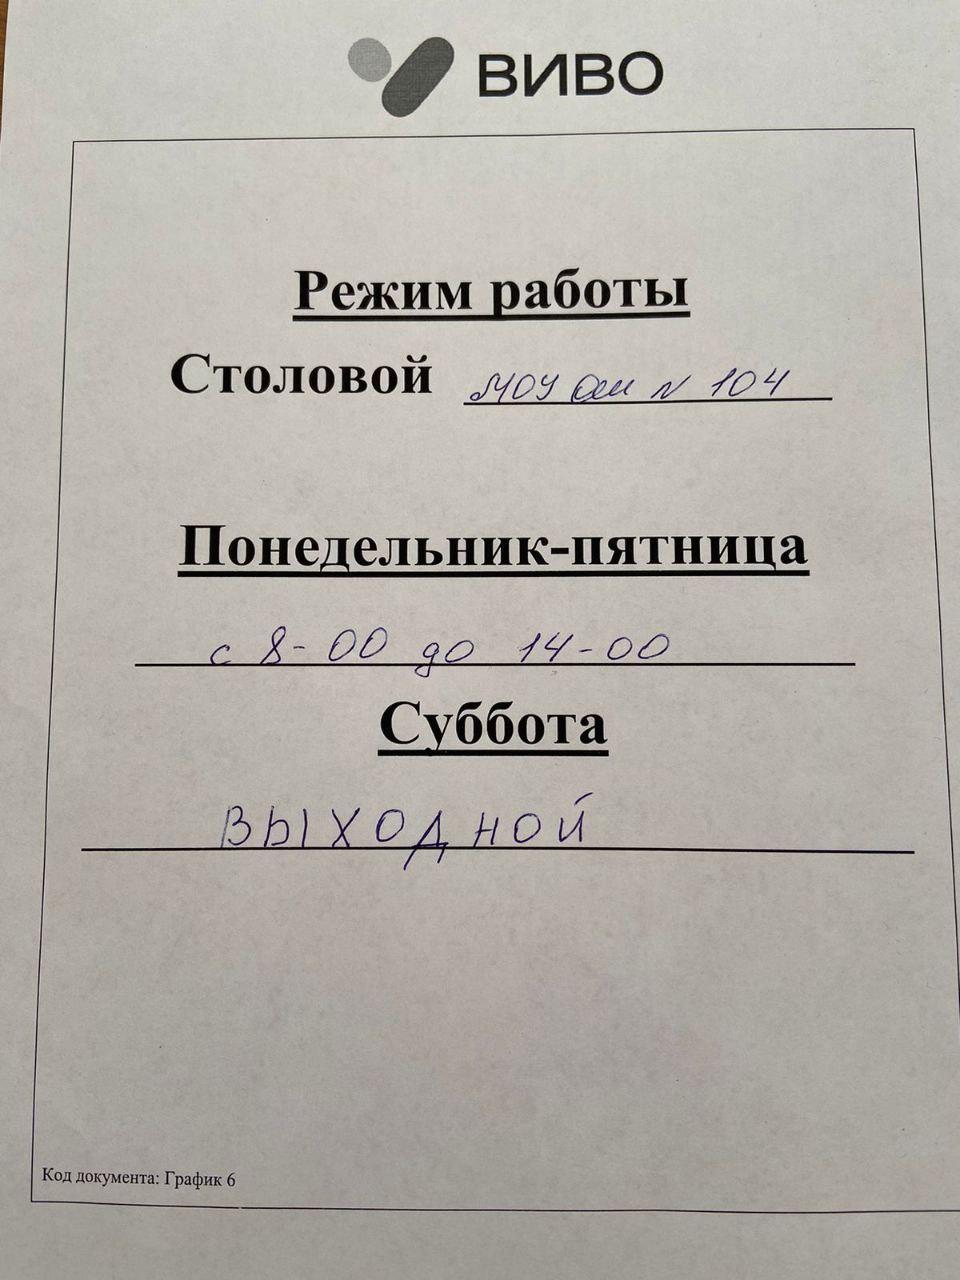 ВИВО
Режим работы
Столовой МОУ ОШ N 104
Понедельник-пятница
с 8-00 до 14-00
Суббота
ВЫХОДНОЙ
Код документа: График 6